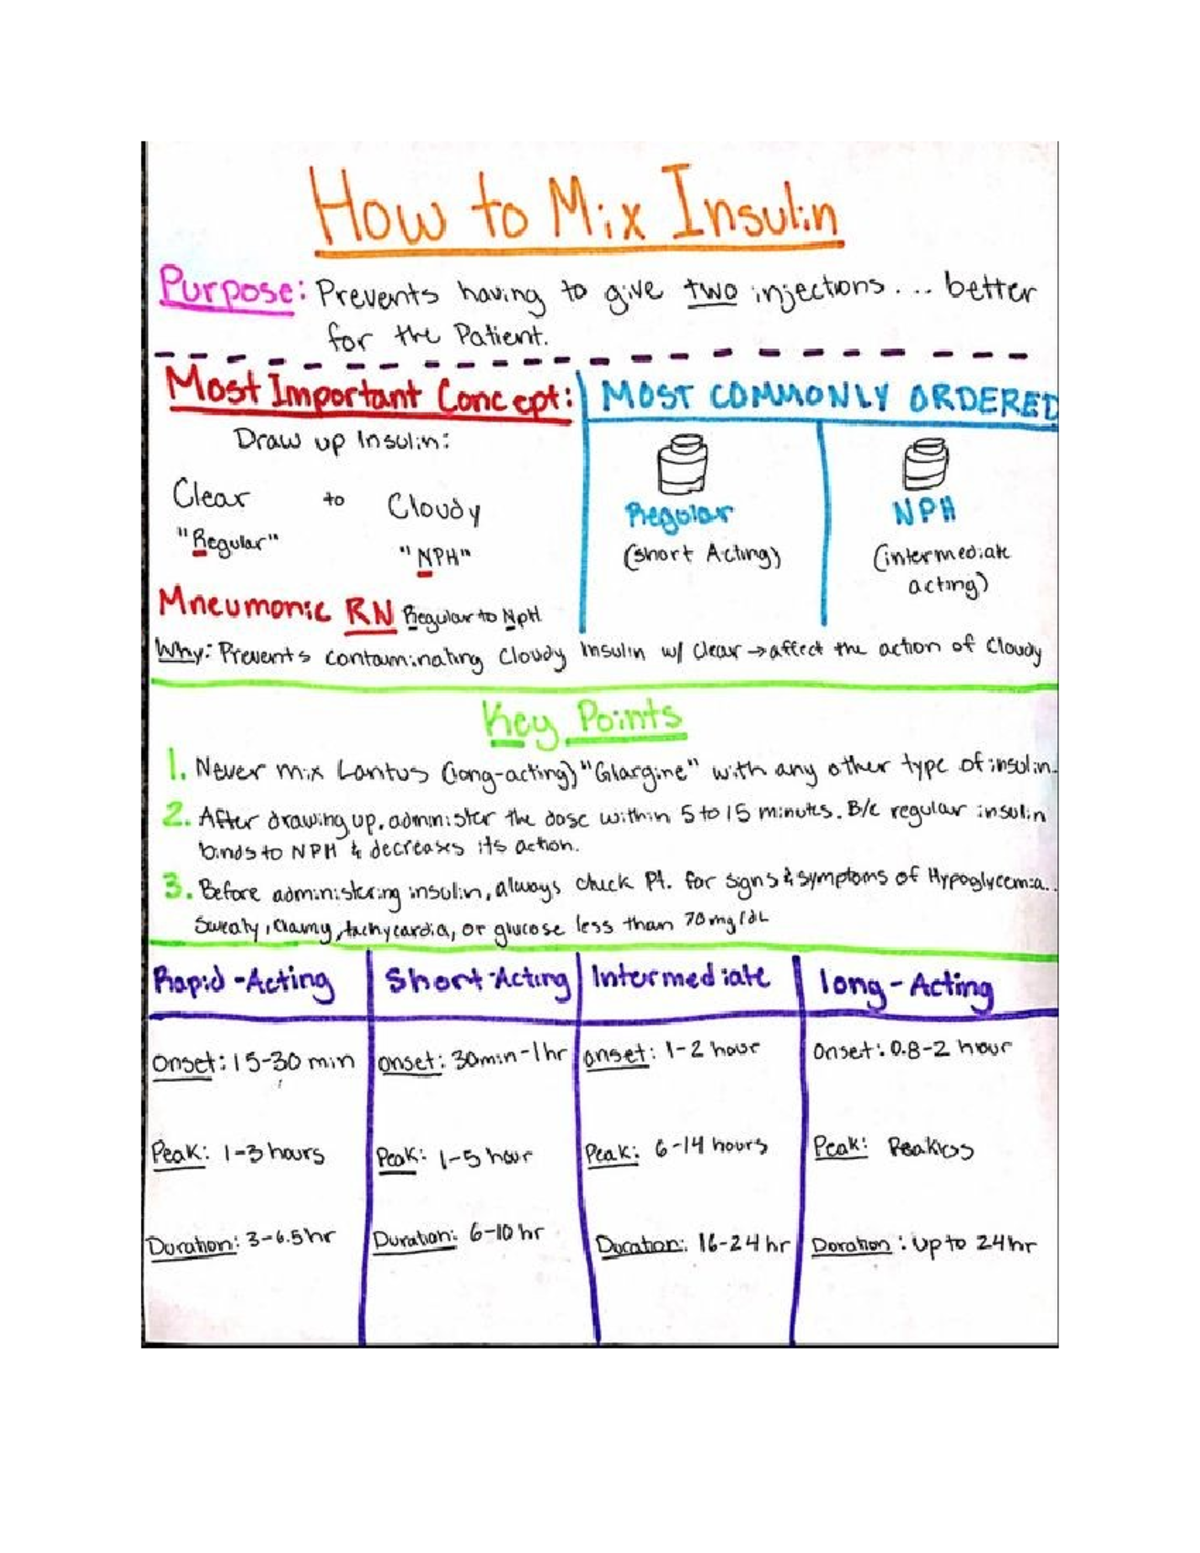 How to Mix Insulin
Purpose: Prevents having to give two injections... better
for the Patient.
Most Important Concept:
Draw up Insulin:
Clear to Cloudy
"Regular" "NPH"
Mneumonic RN Regular to NpH
MOST COMMONLY ORDERED
Regular NPH
(Short Acting) (intermediate
acting)
Why: Prevents contaminating Cloudy Insulin w/ Clear → affect the action of Cloudy
Key Points
1. Never mix Lantus (long-acting) "Glargine" with any other type of insulin.
2. After drawing up, administer the dose within 5 to 15 minutes. B/c regular insulin
binds to NPH & decreases its action.
3. Before administering insulin, always check Pt. for signs & symptoms of Hypoglycemia..
Sweaty, clamy, tachycardia, or glucose less than 70mg/dL
Rapid-Acting Short-Acting Intermediate long-Acting
Onset: 15-30 min onset: 30min-1hr onset: 1-2 hour Onset: 0.8-2 hour
Peak: 1-3 hours Peak: 1-5 hour Peak: 6-14 hours Peak: Peakless
Duration: 3-6.5hr Duration: 6-10 hr Duration: 16-24 hr Doration: up to 24hr